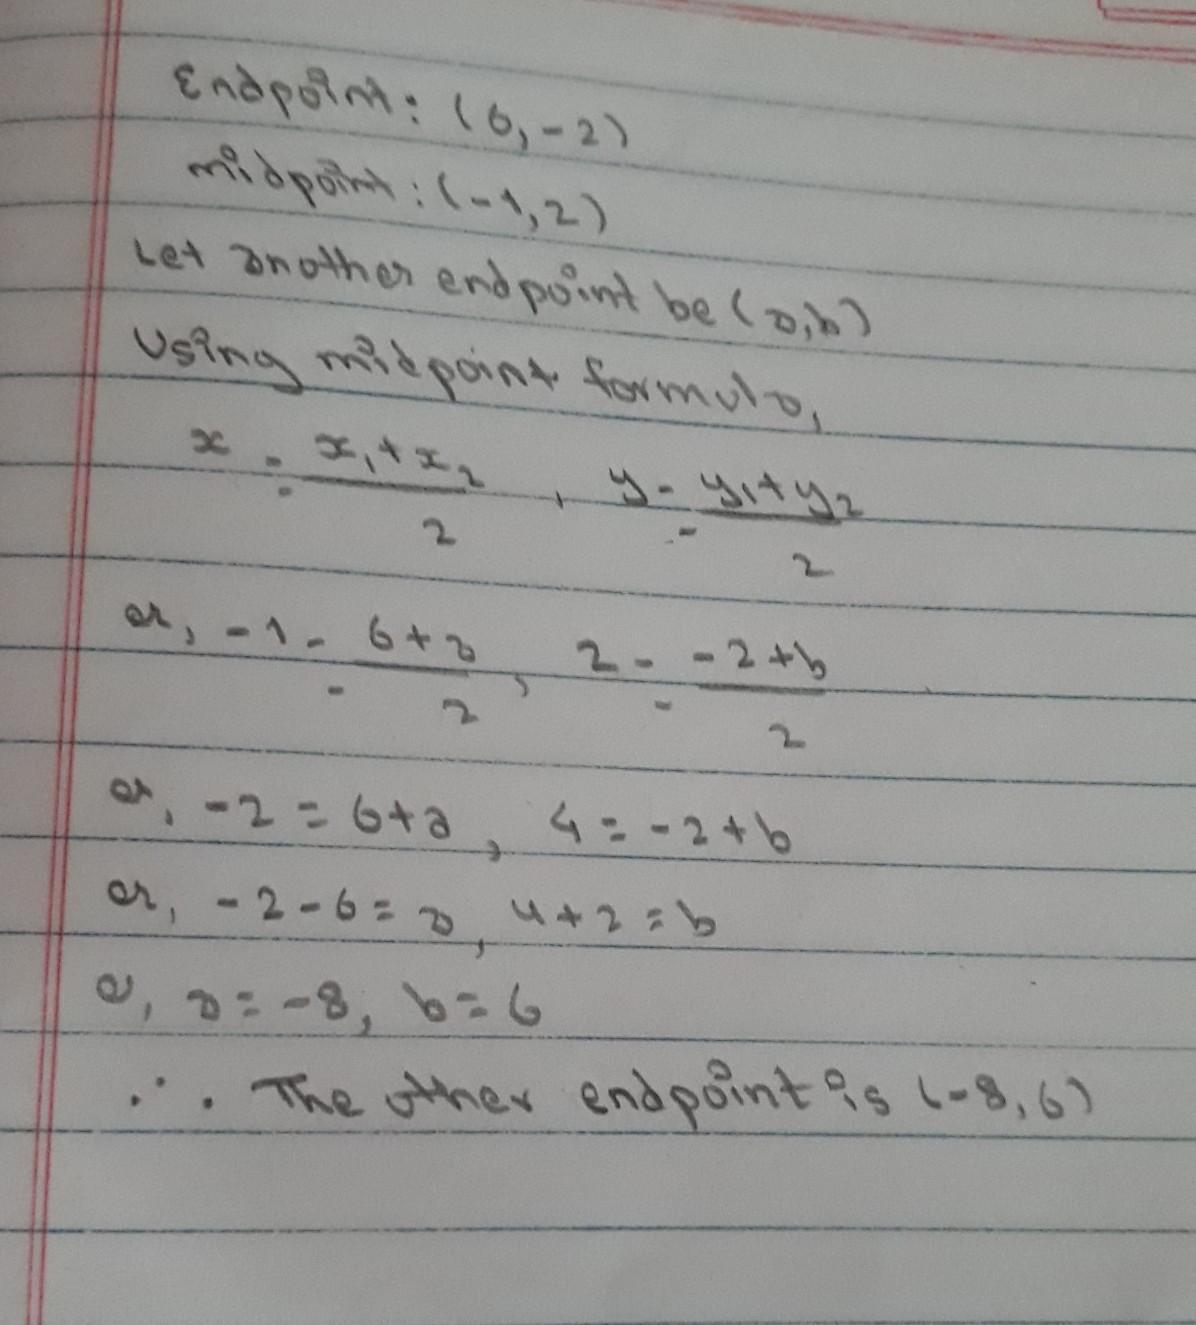 Endpoint: (6, -2)
midpoint: (-1, 2)
Let another endpoint be (a, b)
Using midpoint formula,
x = (x₁ + x₂)/2 , y = (y₁ + y₂)/2
or, -1 = (6 + a)/2 , 2 = (-2 + b)/2
or, -2 = 6 + a , 4 = -2 + b
or, -2 - 6 = a , 4 + 2 = b
or, a = -8, b = 6
∴ The other endpoint is (-8, 6)